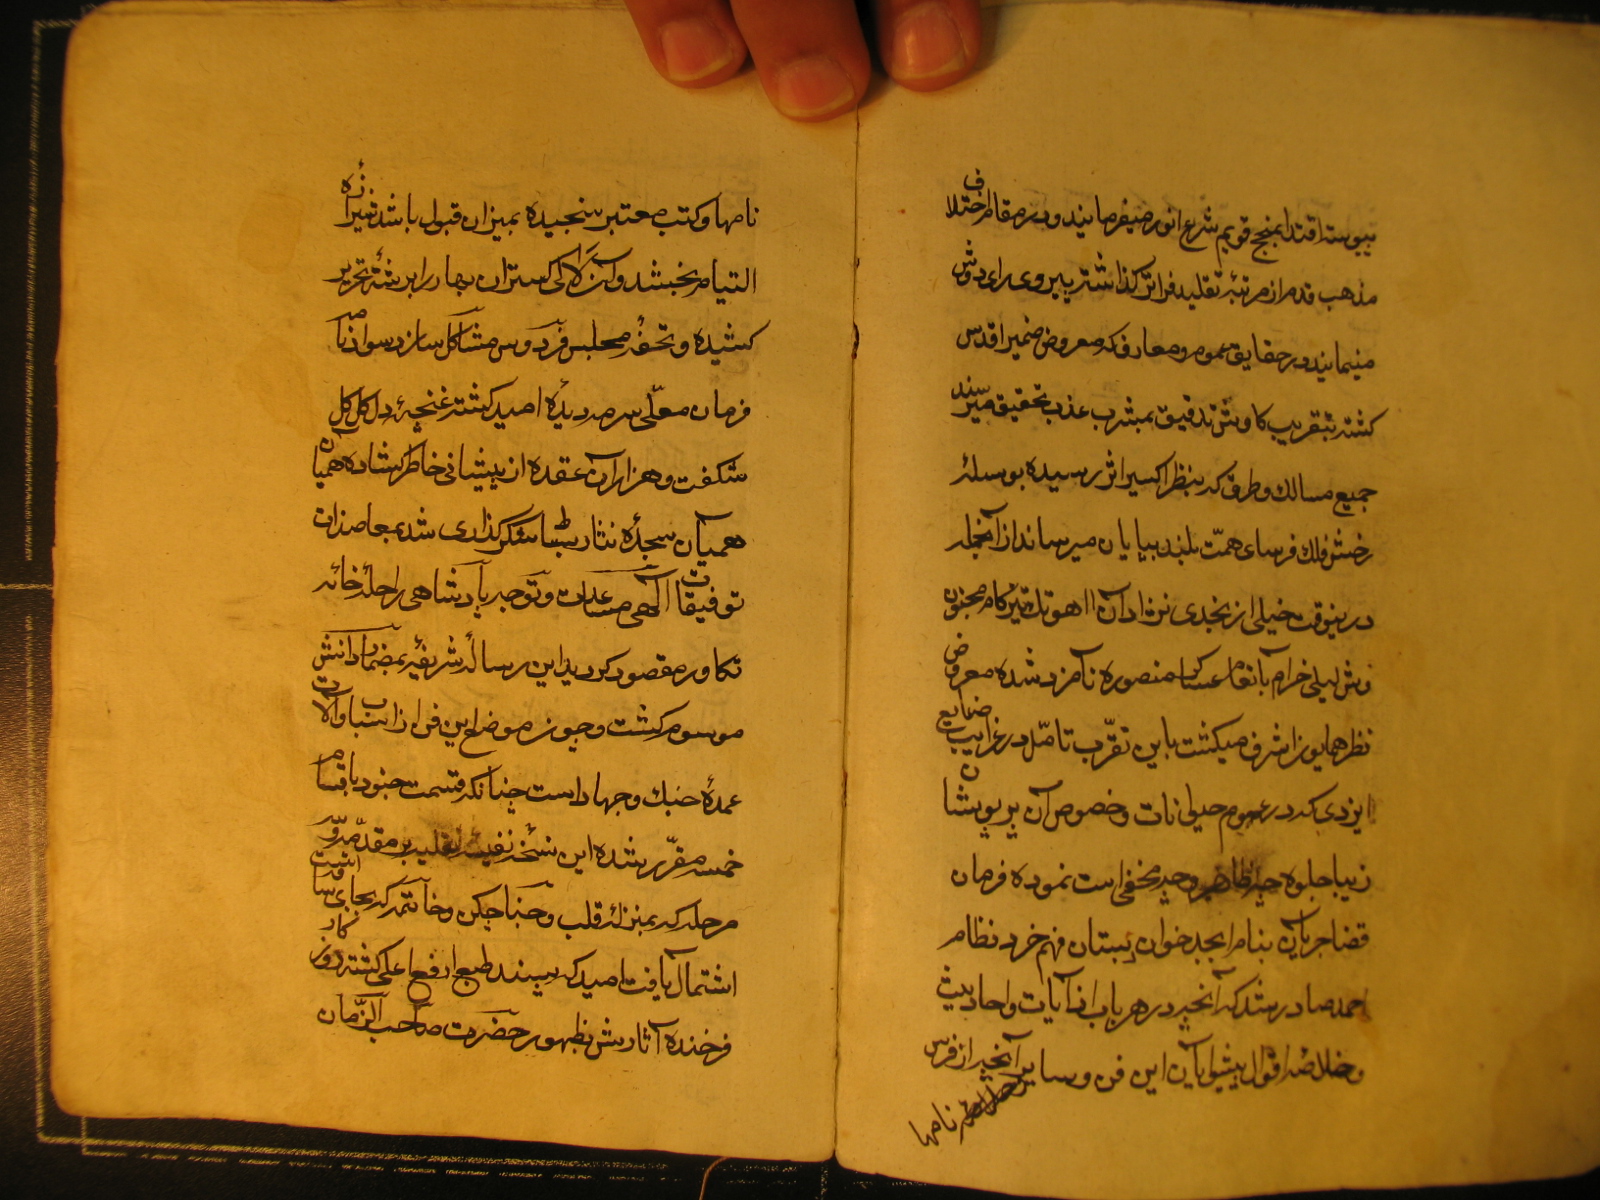 پیوسته اقتدا بمنهج قویم شرع انور میفرمایند و در مقام اختلاف
مذهب قدم از مرتبه تقلید فراتر گذاشته پیروی رای
مینمایند در حقایق علوم و معارف که معروض ضمیر اقدس
کشته بتقریب کاوش تدقیق بمشرب عذب تحقیق میرسند
جمیع مسالک و طرق که بنظر اکسیر اثر رسیده بوسیلهٔ
رخش فلک فرسای همت بلند بپایان میرسانند از آنجمله
درینوقت خیلی از نجدی نژادان آهو تک تیزکام مجنون
وش لیلی خرام بانعام عساکر منصوره نامزد شده معروض
نظر همایون اشرف میکشت باین تقرّب تامّل در غرایب صنایع
ایزدی که در عموم حیوانات و خصوص آن پریوشان
زیبا جلوه چه ظاهر و چه مخفی است نموده فرمان
قضا جریان بنام ابجد خوان دبستان فهم خرد نظام
احمد صادر شد که آنچه در هر باب از آیات و احادیث
و خلاصه اقوال پیشوایان این فن و سایر آنچه از فرس
نامها
نامها و کتب معتبر سنجیده بمیزان قبول باشد شیرازه
التیام بخشد و آن لآلی کستران بها را برشته تحریر
کشیده و تحفه مجلس فردوس مشاکل سازد سواد نامه
فرمان معلّی سرمه دیدهٔ امید کشته غنچهٔ دل کل کل
شکفت و هزاران عقده از پیشانی خاطر کشاده همیان
همیان سجدهٔ نثار بساط شکرگذاری شد بمعاضدت
توفیقات الهی و مساعدت و توجه پادشاهی راحلهٔ خامه
تکاور مقصود کردید این رساله شریفه بمضمار دانش
موسوم کشت و چون موضوع این فن از اسباب و آلات
عمدهٔ جنک و جهاد است چنانکه قسمت جنود باقسام
خمسه مقرر شده این نسخه نفیسه بر مقدّمه و دو
مرحله که بمنزله قلب و جناحین و خاتمه که بجای ساقه است
اشتمال یافت امید که پسند طبع ارفع اعلی کشته روزکار
فرخنده آثارش بظهور حضرت صاحب الزّمان